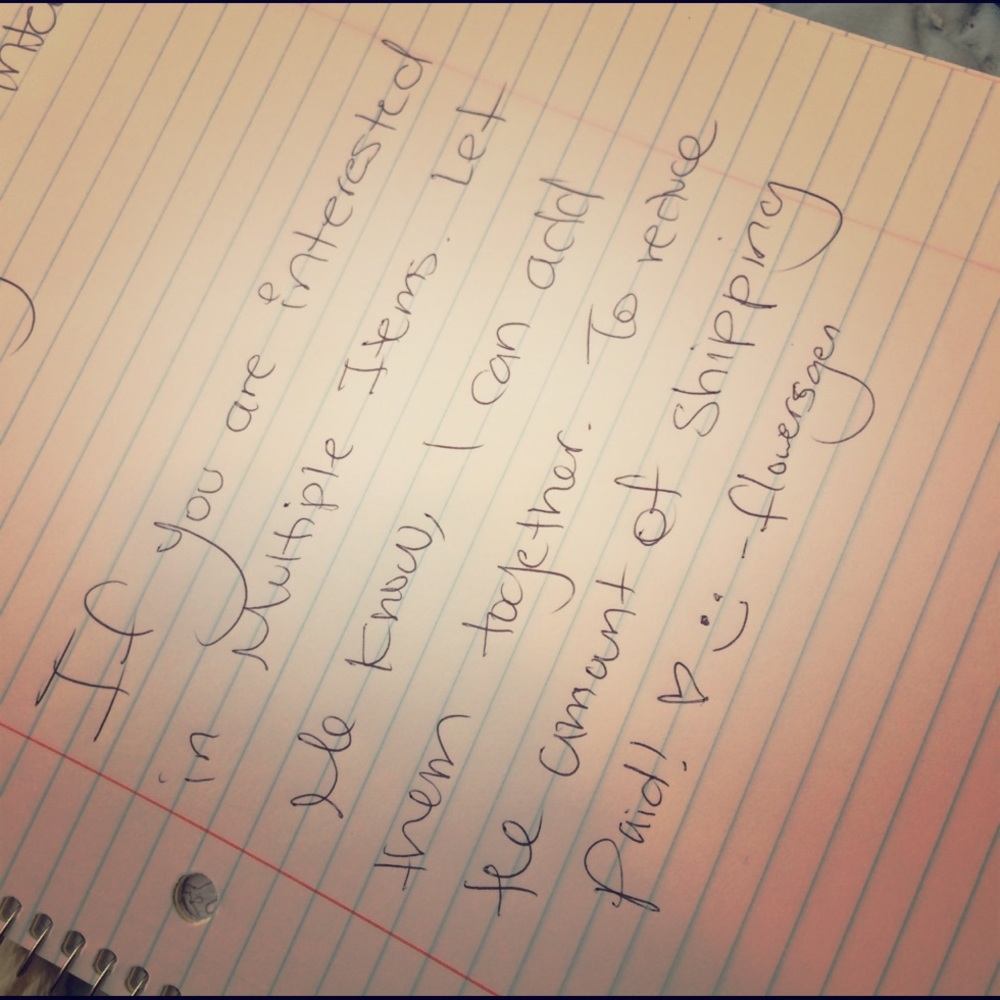 If you are interested
in Multiple Items. Let
Me know, I can add
them together. To reduce
the amount of Shipping
Paid! ♡ :) -flowersgen